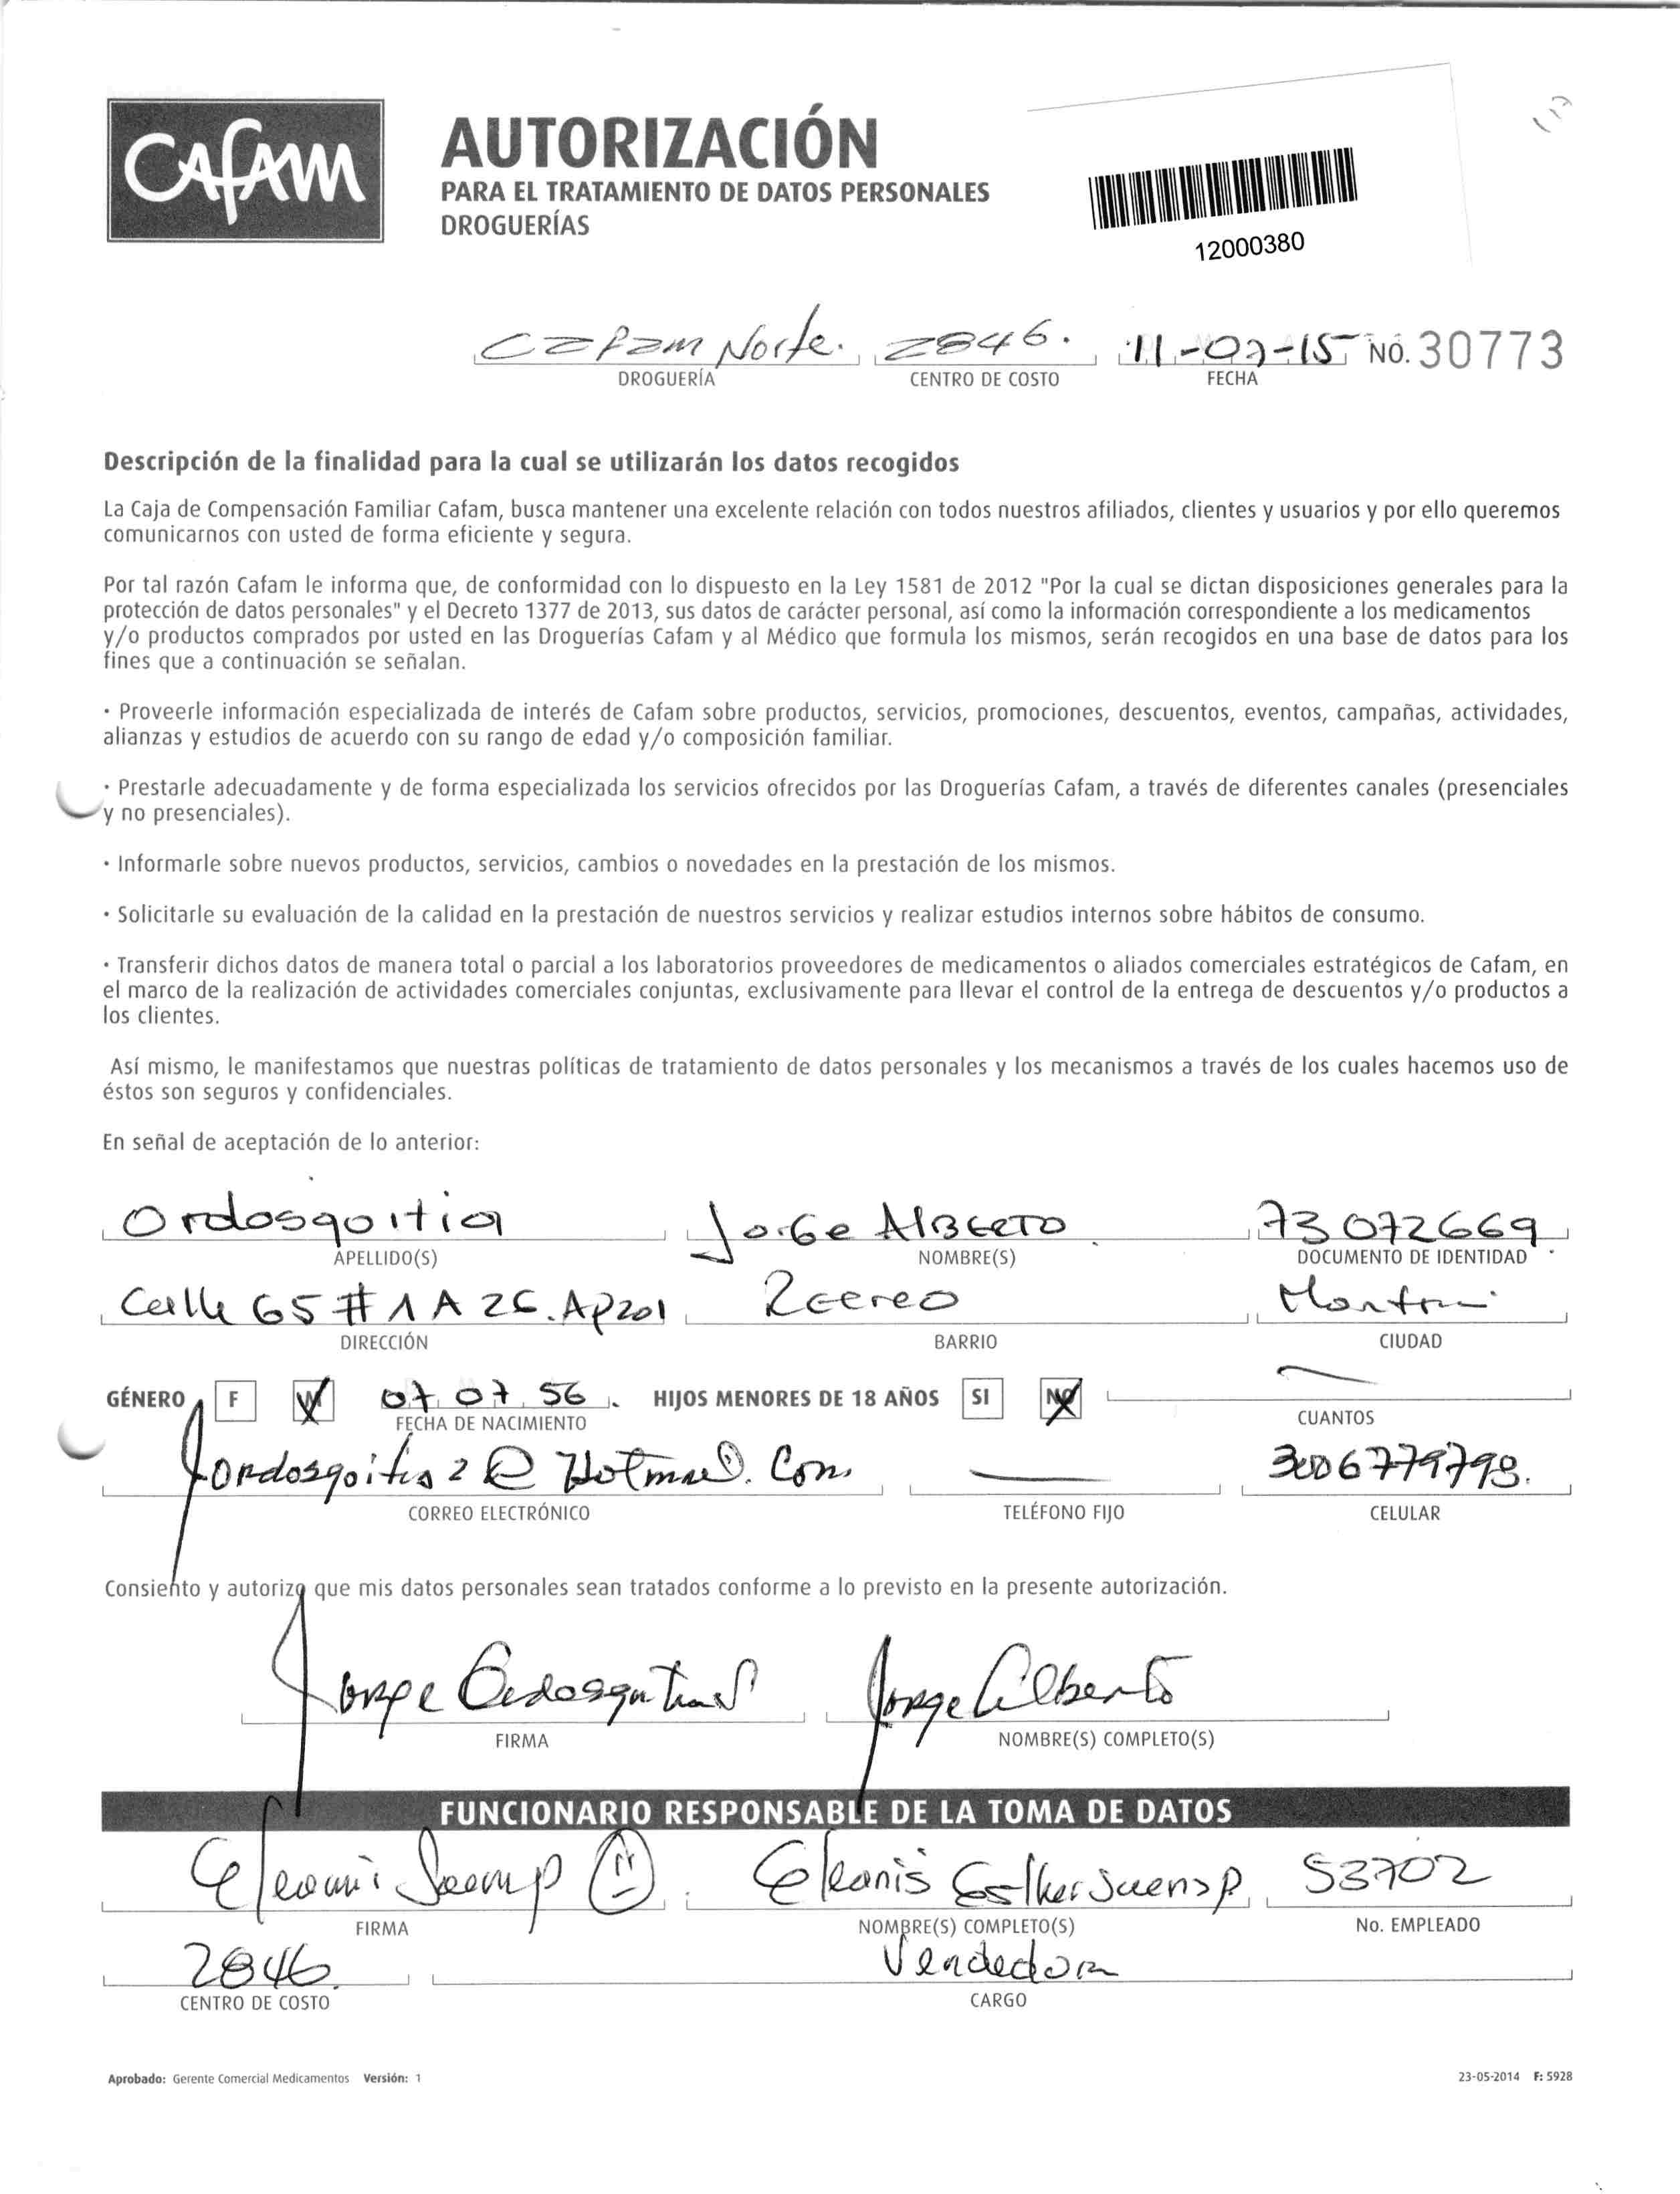 CAFAM
AUTORIZACIÓN
PARA EL TRATAMIENTO DE DATOS PERSONALES
DROGUERÍAS
12000380
Cafam Norte. 2846. 11-07-15 NO. 30773
DROGUERÍA CENTRO DE COSTO FECHA
Descripción de la finalidad para la cual se utilizarán los datos recogidos
La Caja de Compensación Familiar Cafam, busca mantener una excelente relación con todos nuestros afiliados, clientes y usuarios y por ello queremos
comunicarnos con usted de forma eficiente y segura.
Por tal razón Cafam le informa que, de conformidad con lo dispuesto en la Ley 1581 de 2012 "Por la cual se dictan disposiciones generales para la
protección de datos personales" y el Decreto 1377 de 2013, sus datos de carácter personal, así como la información correspondiente a los medicamentos
y/o productos comprados por usted en las Droguerías Cafam y al Médico que formula los mismos, serán recogidos en una base de datos para los
fines que a continuación se señalan.
· Proveerle información especializada de interés de Cafam sobre productos, servicios, promociones, descuentos, eventos, campañas, actividades,
alianzas y estudios de acuerdo con su rango de edad y/o composición familiar.
· Prestarle adecuadamente y de forma especializada los servicios ofrecidos por las Droguerías Cafam, a través de diferentes canales (presenciales
y no presenciales).
· Informarle sobre nuevos productos, servicios, cambios o novedades en la prestación de los mismos.
· Solicitarle su evaluación de la calidad en la prestación de nuestros servicios y realizar estudios internos sobre hábitos de consumo.
· Transferir dichos datos de manera total o parcial a los laboratorios proveedores de medicamentos o aliados comerciales estratégicos de Cafam, en
el marco de la realización de actividades comerciales conjuntas, exclusivamente para llevar el control de la entrega de descuentos y/o productos a
los clientes.
Así mismo, le manifestamos que nuestras políticas de tratamiento de datos personales y los mecanismos a través de los cuales hacemos uso de
éstos son seguros y confidenciales.
En señal de aceptación de lo anterior:
Ordosgoitia Jorge Alberto 73072669
APELLIDO(S) NOMBRE(S) DOCUMENTO DE IDENTIDAD
Calle 65 # 1A 26. Ap201 Recreo
DIRECCIÓN BARRIO CIUDAD
GÉNERO F M 07 07 56. HIJOS MENORES DE 18 AÑOS SI NO
FECHA DE NACIMIENTO CUANTOS
Jordosgoitia2@Hotmail.Com 3006779798.
CORREO ELECTRÓNICO TELÉFONO FIJO CELULAR
Consiento y autorizo que mis datos personales sean tratados conforme a lo previsto en la presente autorización.
Jorge Ordosgoitia Jorge Alberto
FIRMA NOMBRE(S) COMPLETO(S)
FUNCIONARIO RESPONSABLE DE LA TOMA DE DATOS
Eleanis Saenz P Eleanis Esther Saenz P. 53702
FIRMA NOMBRE(S) COMPLETO(S) No. EMPLEADO
2846. Vendedora
CENTRO DE COSTO CARGO
Aprobado: Gerente Comercial Medicamentos Versión: 1 23-05-2014 F: 5928